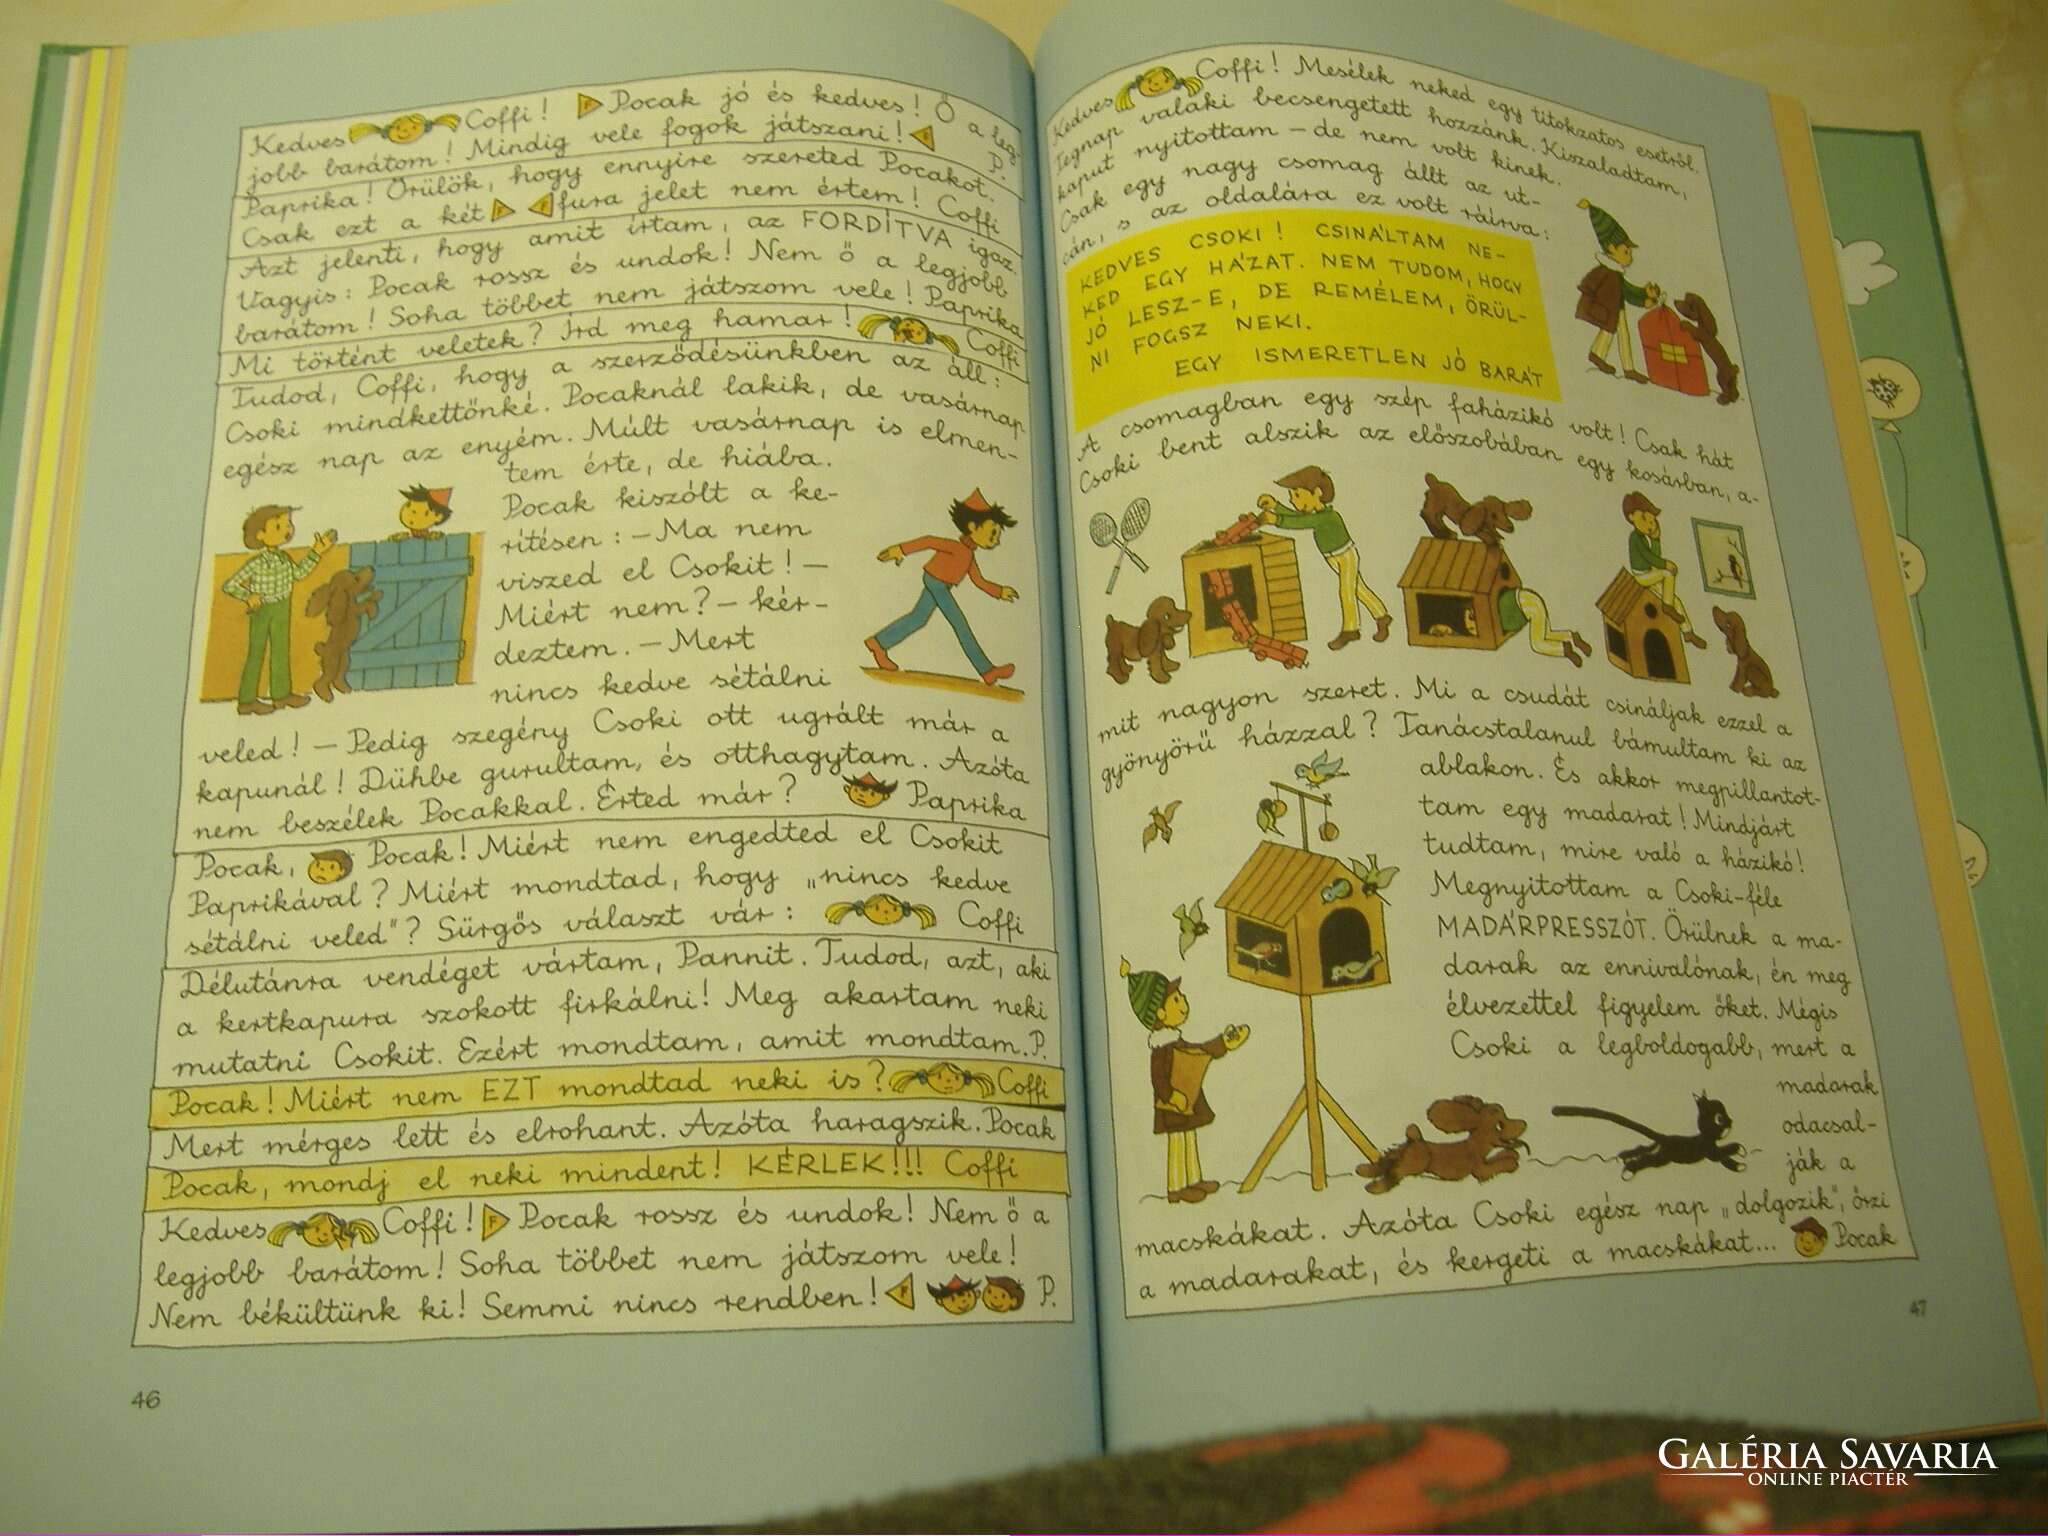 Kedves Coffi! F Pocak jó és kedves! Ő a leg-
jobb barátom! Mindig vele fogok játszani! F P.
Paprika! Örülök, hogy ennyire szereted Pocakot.
Csak ezt a két F F fura jelet nem értem! Coffi
Azt jelenti, hogy amit írtam, az FORDÍTVA igaz.
Vagyis: Pocak rossz és undok! Nem ő a legjobb
barátom! Soha többet nem játszom vele! Paprika
Mi történt veletek? Írd meg hamar! Coffi
Tudod, Coffi, hogy a szerződésünkben az áll:
Csoki mindkettőnké. Pocaknál lakik, de vasárnap
egész nap az enyém. Múlt vasárnap is elmen-
tem érte, de hiába.
Pocak kiszólt a ke-
rítésen: – Ma nem
viszed el Csokit! –
Miért nem? – kér-
deztem. – Mert
nincs kedve sétálni
veled! – Pedig szegény Csoki ott ugrált már a
kapunál! Dühbe gurultam, és otthagytam. Azóta
nem beszélek Pocakkal. Érted már? Paprika
Pocak, Pocak! Miért nem engedted el Csokit
Paprikával? Miért mondtad, hogy „nincs kedve
sétálni veled"? Sürgős választ vár: Coffi
Délutánra vendéget vártam, Pannit. Tudod, azt, aki
a kertkapura szokott firkálni! Meg akartam neki
mutatni Csokit. Ezért mondtam, amit mondtam. P.
Pocak! Miért nem EZT mondtad neki is? Coffi
Mert mérges lett és elrohant. Azóta haragszik. Pocak
Pocak, mondj el neki mindent! KÉRLEK!!! Coffi
Kedves Coffi! F Pocak rossz és undok! Nem ő a
legjobb barátom! Soha többet nem játszom vele!
Nem békültünk ki! Semmi nincs rendben! F P.
46
Kedves Coffi! Mesélek neked egy titokzatos esetről.
Tegnap valaki becsengetett hozzánk. Kiszaladtam,
kaput nyitottam – de nem volt kinek.
Csak egy nagy csomag állt az ut-
cán, s az oldalára ez volt ráírva:
KEDVES CSOKI! CSINÁLTAM NE-
KED EGY HÁZAT. NEM TUDOM, HOGY
JÓ LESZ-E, DE REMÉLEM, ÖRÜL-
NI FOGSZ NEKI.
EGY ISMERETLEN JÓ BARÁT
A csomagban egy szép faházikó volt! Csak hát
Csoki bent alszik az előszobában egy kosárban, a-
mit nagyon szeret. Mi a csudát csináljak ezzel a
gyönyörű házzal? Tanácstalanul bámultam ki az
ablakon. És akkor megpillantot-
tam egy madarat! Mindjárt
tudtam, mire való a házikó!
Megnyitottam a Csoki-féle
MADÁRPRESSZÓT. Örülnek a ma-
darak az ennivalónak, én meg
élvezettel figyelem őket. Mégis
Csoki a legboldogabb, mert a
madarak
odacsal-
ják a
macskákat. Azóta Csoki egész nap „dolgozik", őrzi
a madarakat, és kergeti a macskákat... Pocak
47
GALÉRIA SAVARIA
ONLINE PIACTÉR